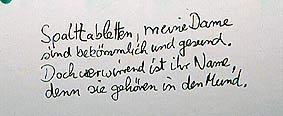 Spalttabletten, meine Dame
sind bekömmlich und gesund.
Doch verwirrend ist ihr Name,
denn sie gehören in den Mund.